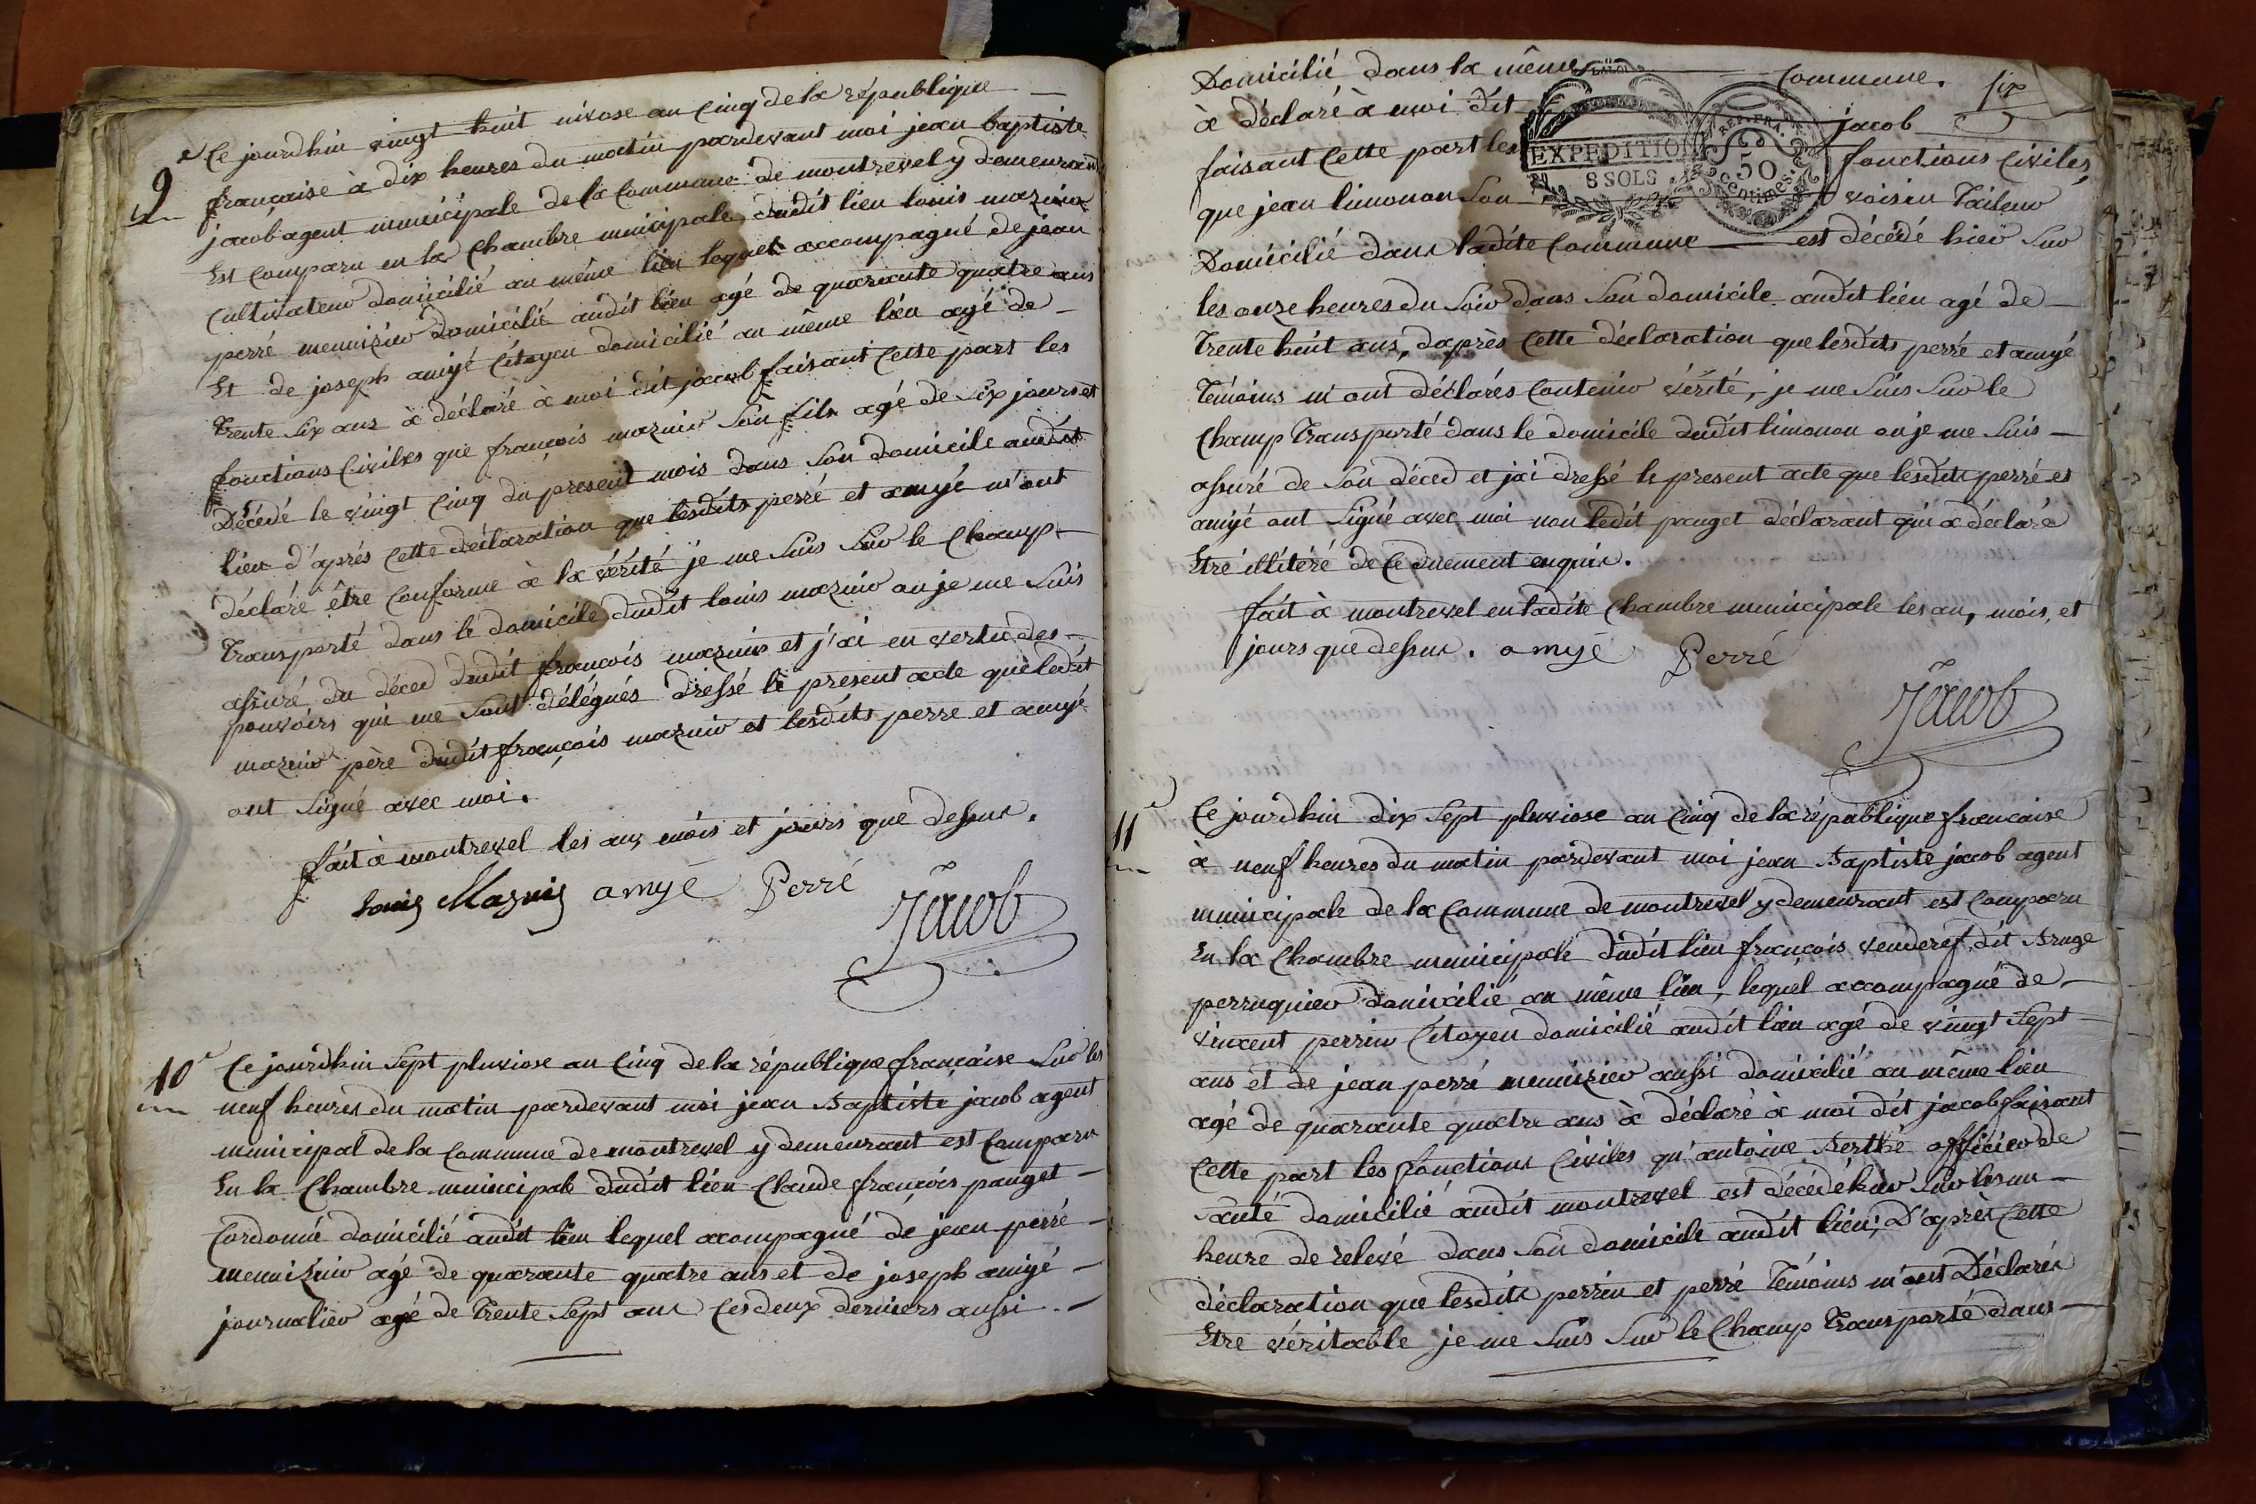 9e Ce jourdhui vingt huit nivose an Cinq de la république
française à dix heures du matin pardevant moi jean baptiste
jacob agent municipale de la Commune de montrevel y demeurant
Est Comparu en la Chambre municipale dudit lieu louis maznio
Cultivateur domicilié au même lieu lequel accompagné de jean
perré menuizier domicilié audit lieu agé de quarante quatre ans
Et de joseph amyé Citoyen domicilié au même lieu agé de
trente six ans à déclaré à moi dit jacob faisant Cette part les
fonctions Civiles que françois son fils agé de Six jours est
Décédé le vingt Cinq du present mois dans Son domicile audit
lieu d'aprés Cette déclaration que lesdits perré et amyé m'ont
déclaré être Conforme à la vérité je me Suis Sur le Champ
transporté dans le domicile dudit louis ou je me Suis
assuré du déced dudit françois et j'ai en vertu des
pouvoirs qui me Sont délégués dressé le present acte que ledit
père dudit françois et lesdits perré et amyé
ont Signé avec moi.
fait à montrevel les an, mois et jours que dessus.
Louis amyé Perré
Jacob
10e Ce jourdhui Sept pluviose an Cinq de la république française Sur les
neuf heures du matin pardevant moi jean Baptiste jacob agent
municipal de la Commune de montrevel y demeurant est Comparu
En la Chambre municipale dudit lieu Claude françois panget
Cordonié domicilié audit lieu lequel acompagné de jean perré
menuizier agé de quarante quatre ans et de joseph amyé
journalier agé de trente Sept ans Ces deux derniers aussi
Domicilié dans la même Commune. six
à déclaré à moi dit jacob
faisant Cette part les fonctions Civiles
que jean limonon Son voisin Tailleur
EXPEDITION
8 SOLS
REP. FRA.
50
Centimes
Domicilié dans ladite Commune est décédé hier Sur
les onze heures du Soir dans Son domicile audit lieu agé de
trente huit ans, daprès Cette déclaration que lesdits perré et amyé
Témoins m'ont déclarés Contenir vérité, je me Suis Sur le
Champ transporté dans le domicile dudit limonon ou je me Suis
assuré de Son déced et jai dressé le present acte que lesdits perré et
amyé ont Signé avec moi non ledit panget déclarant qui a déclaré
Etre illitéré de Ce duement enquis.
fait à montrevel en ladite Chambre municipale les an, mois, et
jours que dessus. amyé Perré
Jacob
11e Ce jourdhui dix Sept pluviose an Cinq de la république francaise
à neuf heures du matin pardevant moi jean Baptiste jacob agent
municipale de la Commune de montrevel y demeurant est Comparu
En la Chambre municipale dudit lieu françois dit
perruquier domicilié au même lieu, lequel accompagné de
vincent perrin Citoyen domicilié audit lieu agé de vingt Sept
ans et de jean perré menuizier aussi domicilié au même lieu
agé de quarante quatre ans à déclaré à moi dit jacob faisant
Cette part les fonctions Civiles qu'antoine Berthé officier de
santé domicilié audit montrevel est décédé hier Sur les un
heure de relevé dans Son domicile audit lieu; D'après Cette
déclaration que lesdits perrin et perré Témoins m'ont Déclarés
Etre véritable je me Suis Sur le Champ transporté dans